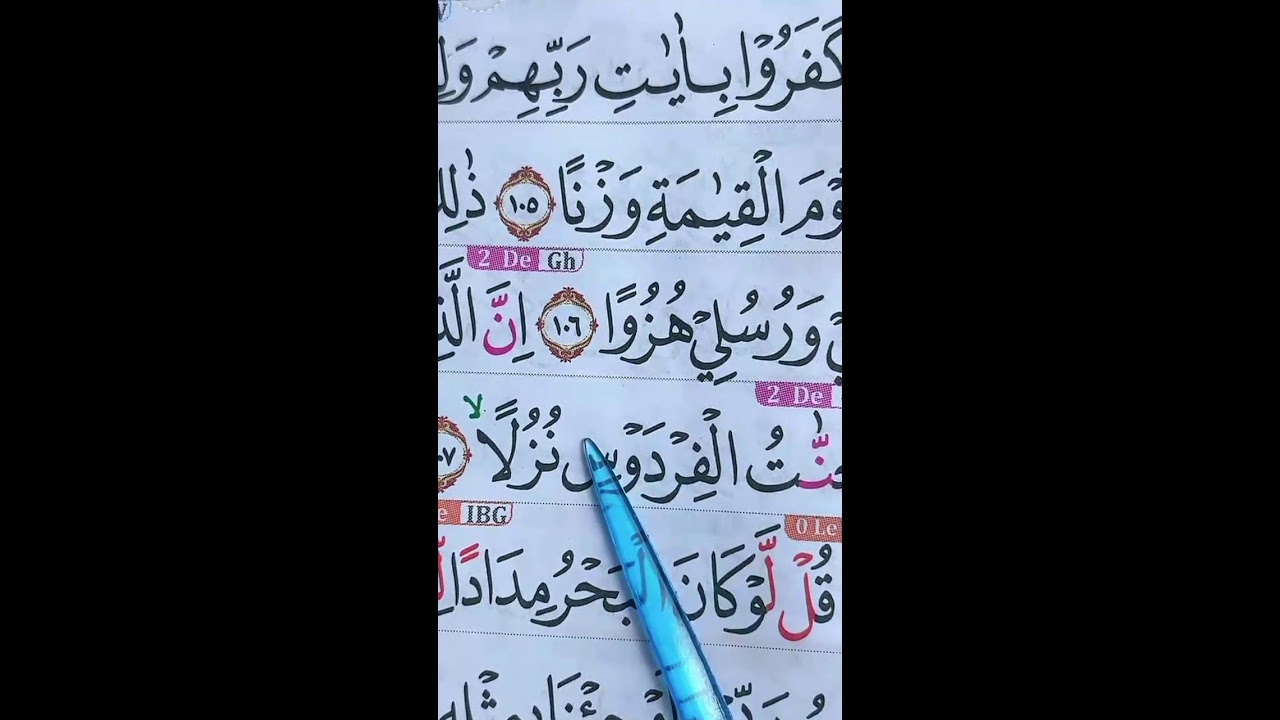 كَفَرُوْا بِاٰيٰتِ رَبِّهِمْ وَلِ
وْمَ الْقِيٰمَةِ وَزْنًا ١٠٥ ذٰلِكَ
2 De Gh
وَرُسُلِيْ هُزُوًا ١٠٦ اِنَّ الَّذِ
2 De
جَنّٰتُ الْفِرْدَوْسِ نُزُلًا ۙ ١٠٧
IBG 0 Le
قُلْ لَّوْ كَانَ الْبَحْرُ مِدَادًا لِّ
جِئْنَا بِمِثْلِهٖ